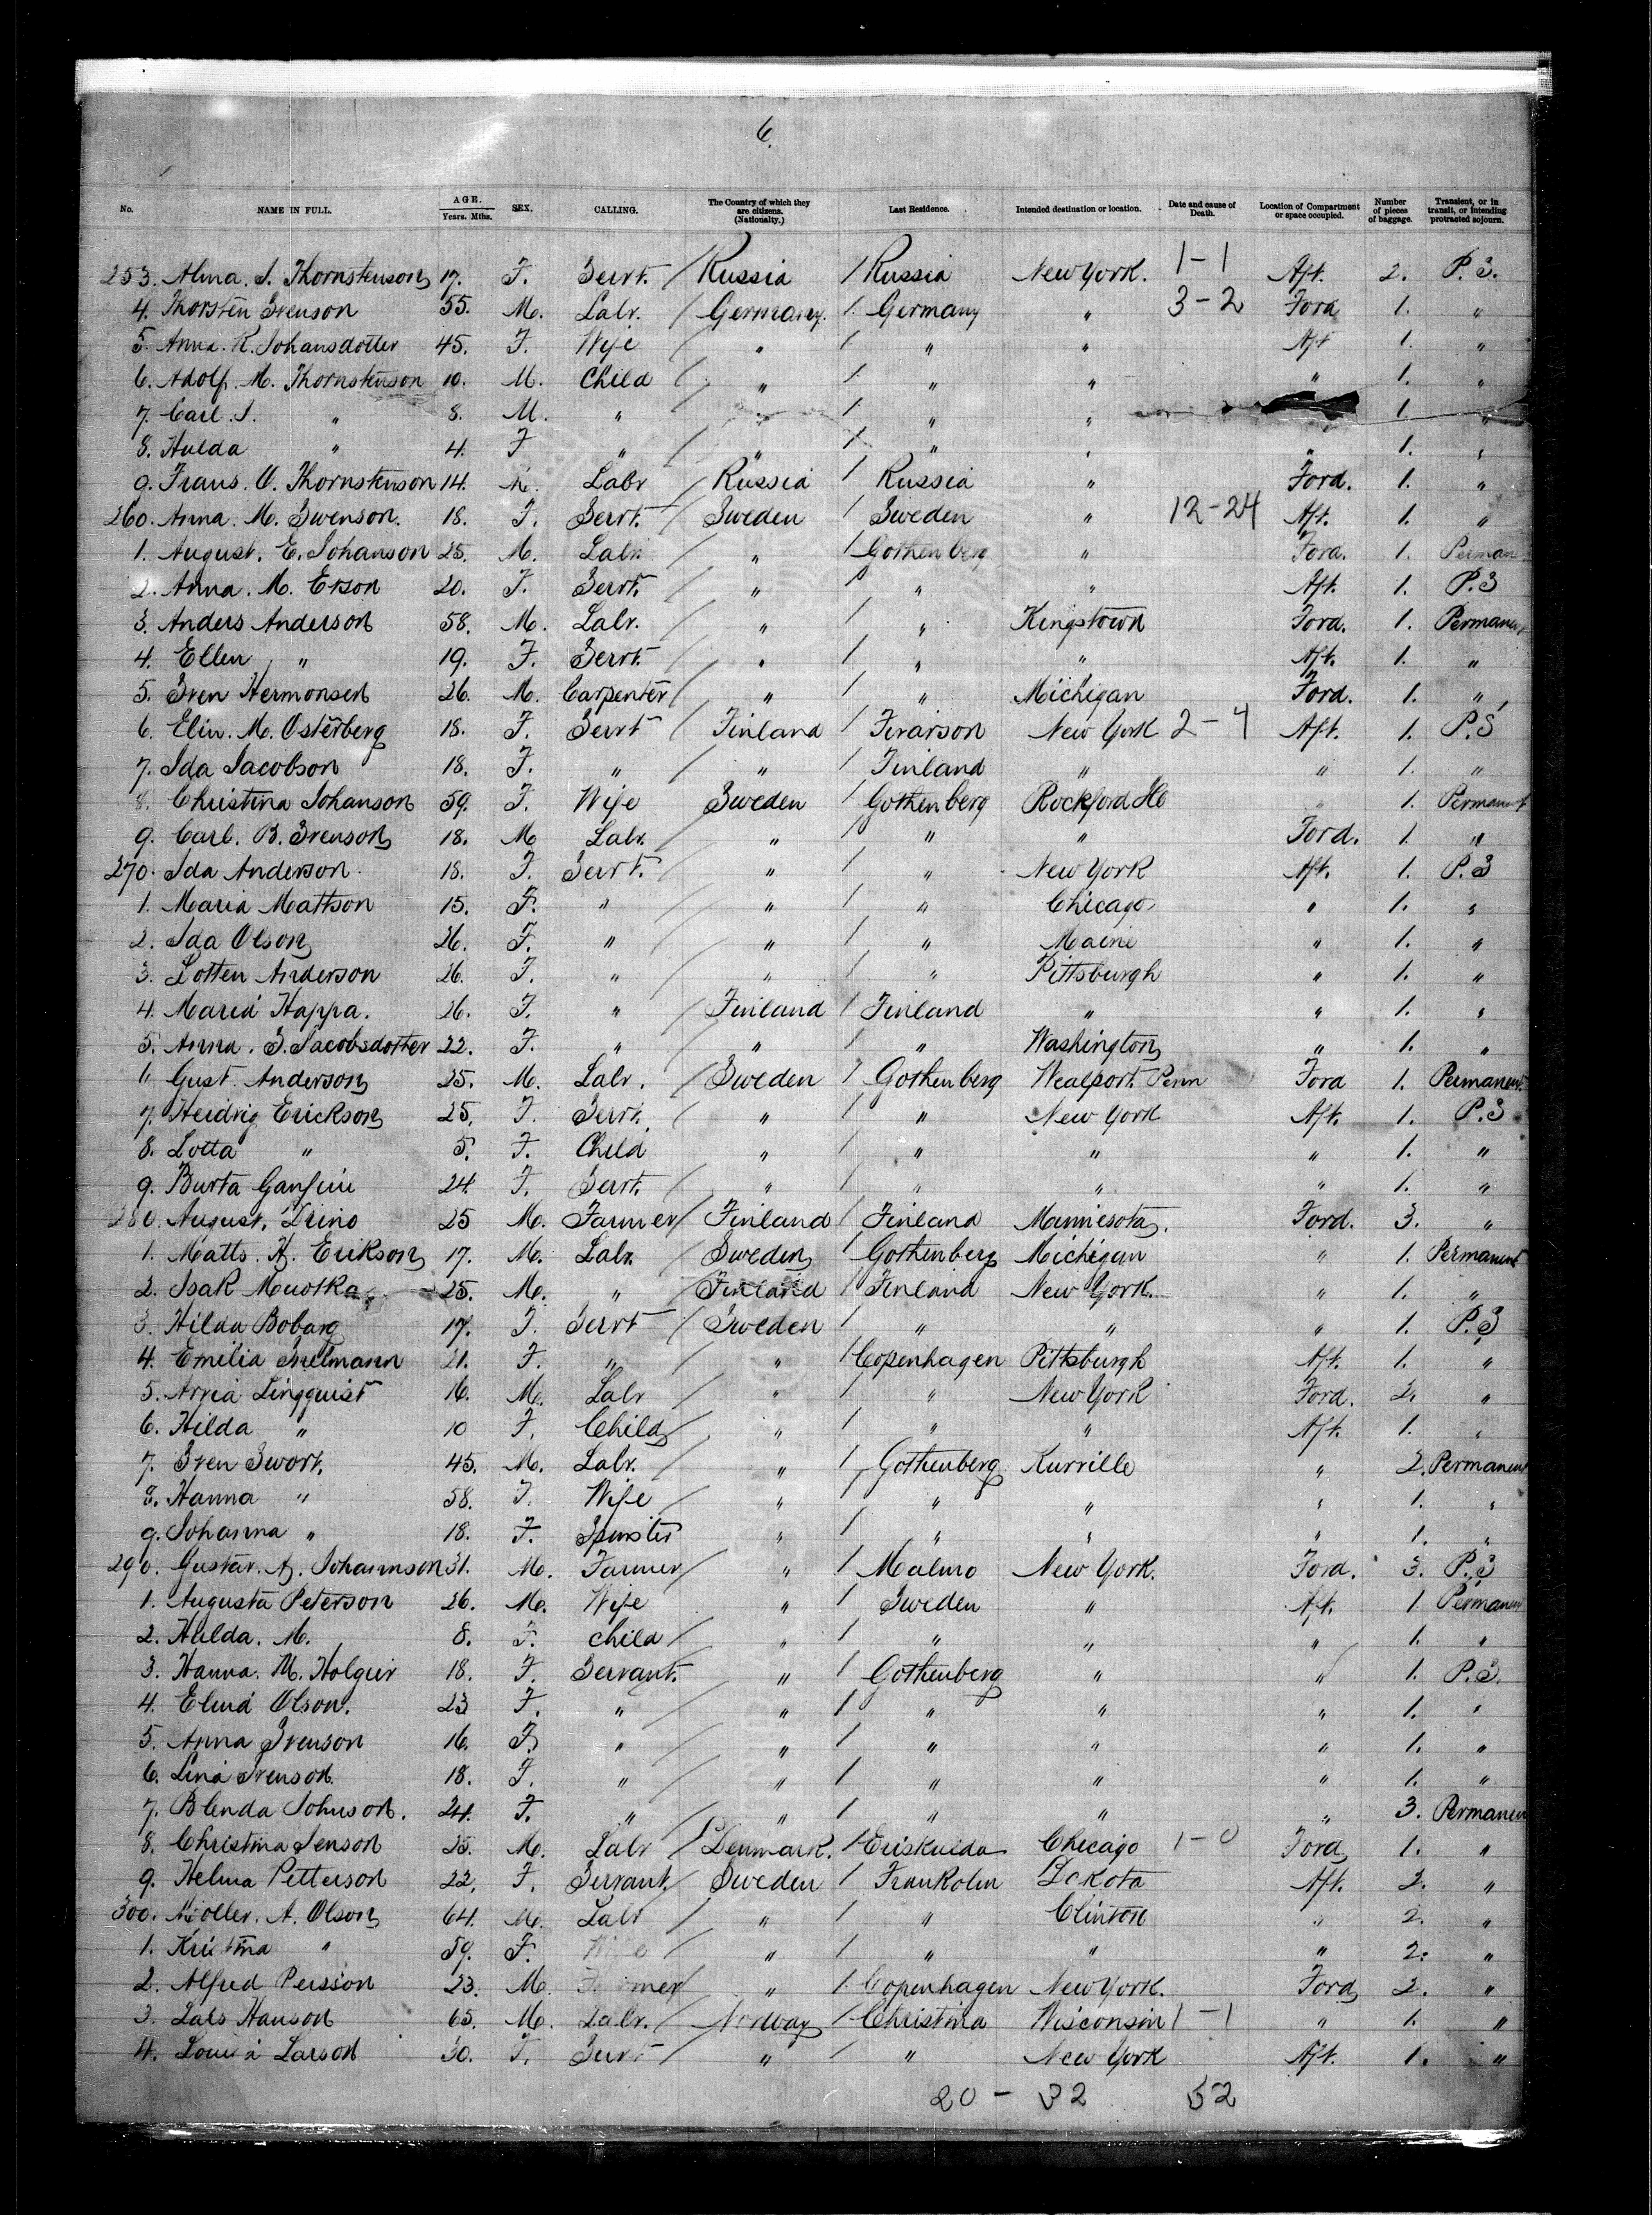 6.
No. NAME IN FULL. AGE. Years. Mths. SEX. CALLING. The Country of which they are citizens. (Nationalty.) Last Residence. Intended destination or location. Date and cause of Death. Location of Compartment or space occupied. Number of pieces of baggage. Transient, or in transit, or intending protracted sojourn.
253. Alma. S. Thornstenson 17. F. Servt. / Russia / Russia New York. 1-1 Aft. 2. P.S.
4. Thorsten Svenson 55. M. Labr. / Germany. /. Germany " 3-2 Ford 1. "
5. Anna. R. Johansdotter 45. F. Wife / " / " " Aft 1. "
6. Adolf. M. Thornstenson 10. M. Child / " / " " " 1. "
7. Carl. S. " 8. M. " / " / " " 1. "
8. Hulda " 4. F " / " / " " " 1. "
9. Frans. O. Thornstenson 14. M. Labr / Russia / Russia " Ford. 1. "
260. Anna. M. Swenson. 18. F. Servt. / Sweden / Sweden " 12-24 Aft. 1. "
1. August. E. Johanson 25. M. Labr. / " / Gothenberg " Ford. 1. Perman
2. Anna. M. Erson 20. F. Servt. / " / " " Aft. 1. P.S
3. Anders Anderson 58. M. Labr. / " / " Kingstown Ford. 1. Permanent
4. Ellen " 19. F. Servt. / " / " " Aft. 1. "
5. Sven Hermonsen 26. M. Carpenter / " / " Michigan Ford. 1. "
6. Elin. M. Osterberg 18. F. Servt / Finland / New York 2-4 Aft. 1. P.S
7. Ida Jacobson 18. F. " / " / Finland " " 1. "
8. Christina Johanson 59. F. Wife / Sweden / Gothenberg Rockford Ill " 1. Permanent
9. Carl. B. Svenson 18. M Labr. / " / " " Ford. 1. "
270. Ida Anderson 18. F. Servt. / " / " New York Aft. 1. P.S
1. Maria Mattson 15. F. " / " / " Chicago " 1. "
2. Ida Olson 26. F. " / " / " Maine " 1. "
3. Lotten Anderson 26. F. " / " / " Pittsburgh " 1. "
4. Maria Happa. 26. F. " / Finland / Finland " " 1. "
5. Anna. S. Jacobsdotter 22. F. " / " / " Washington " 1. "
6. Gust. Anderson 25. M. Labr. / Sweden / Gothenberg Penn Ford 1. Permanent.
7. Heidvig Erickson 25. F. Servt. / " / " New York Aft. 1. P.S
8. Lotta " 5. F. Child / " / " " " 1. "
9. 24 F. Servt. / " / " " " 1. "
280. August. 25 M. Farmer / Finland / Finland Minnesota. Ford. 3. "
1. Matts. H. Erikson 17. M. Labr. / Sweden / Gothenberg Michigan " 1. Permanent
2. Isak Muotka 25. M. " / Finland / Finland New York. " 1. "
3. Hilda Boberg 17. F. Servt / Sweden / " " " 1. P.S
4. Emilia 21. F. " / " / Copenhagen Pittsburgh Aft. 1. "
5. Lingquist 16. M. Labr / " / " New York Ford. 2. "
6. Hilda " 10 F. Child / " / " " Aft. 1. "
7. Sven Swort. 45. M. Labr. / " / Gothenberg " 2. Permanent
8. Hanna " 58. F. Wife / " / " " " 1. "
9. Johanna " 18. F. Spinster " / " " " 1. "
290. Gustav. A. Johannson 31. M. Farmer / " / Malmo New York. Ford. 3. P.S
1. Augusta Peterson 26. M. Wife / " / Sweden " Aft. 1. Permanen
2. Hulda. M. 8. F. Child / " / " " " 1. "
3. Hanna. M. Holguir 18. F. Servant. / " / Gothenberg " " 1. P.S.
4. Elma Olson. 23 F. " / " / " " " 1. "
5. Anna Svenson 16. F. " / " / " " " 1. "
6. Lina Svenson. 18. F. " / " / " " " 1. "
7. Blenda Johnson. 24. F. " / " / " " " 3. Permanen
8. Christina Jenson 25. M. Labr / Denmark. / Chicago 1-0 Ford 1. "
9. Helma Petterson 22. F. Servant. / Sweden / Dakota Aft. 2. "
300. Moller. A. Olson 64. M. Labr / " / " Clinton " 2. "
1. Kristina " 59. F. Wife / " / " " " 2. "
2. Alfred Persson 23. M. Farmer / " / Copenhagen New York. Ford 2. "
3. Lars Hanson 65. M. Labr. / Norway / Christina Wisconsin 1-1 " 1. "
4. Louisa Larson 30. F. Servt / " / " New York Aft. 1. "
20 - 32 52